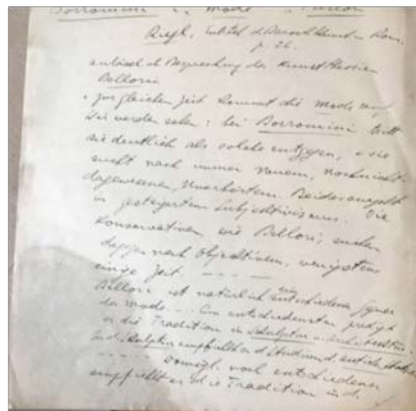 Borromini als Mode
Riegl, Entsteh. d. Barock Kunst in Rom.
p. 26.
anlässlich Besprechung der Kunsttheorien
Belloris
zur gleichen Zeit kommt die Mode auf
Sie werden sehen: bei Borromini tritt
sie deutlich als solche entgegen, sie
sucht nach immer neuem, noch nicht
dagewesenem, Unerhörtem. Beides ausgeht
in gesteigertem Subjectivismus. Die
Konservativen wie Bellori, suchen
dagegen nach Objectivem, wenigstens
einige Zeit - - - -
Bellori ist natürlich entschiedener Gegner
der Mode... Am entschiedensten predigt
er die Tradition in Skulptur u. Architektur.
In d. Skulptur empfiehlt er d. Studium d. antiken
- - - - Womögl. noch entschiedener
empfiehlt er die Tradition in d.